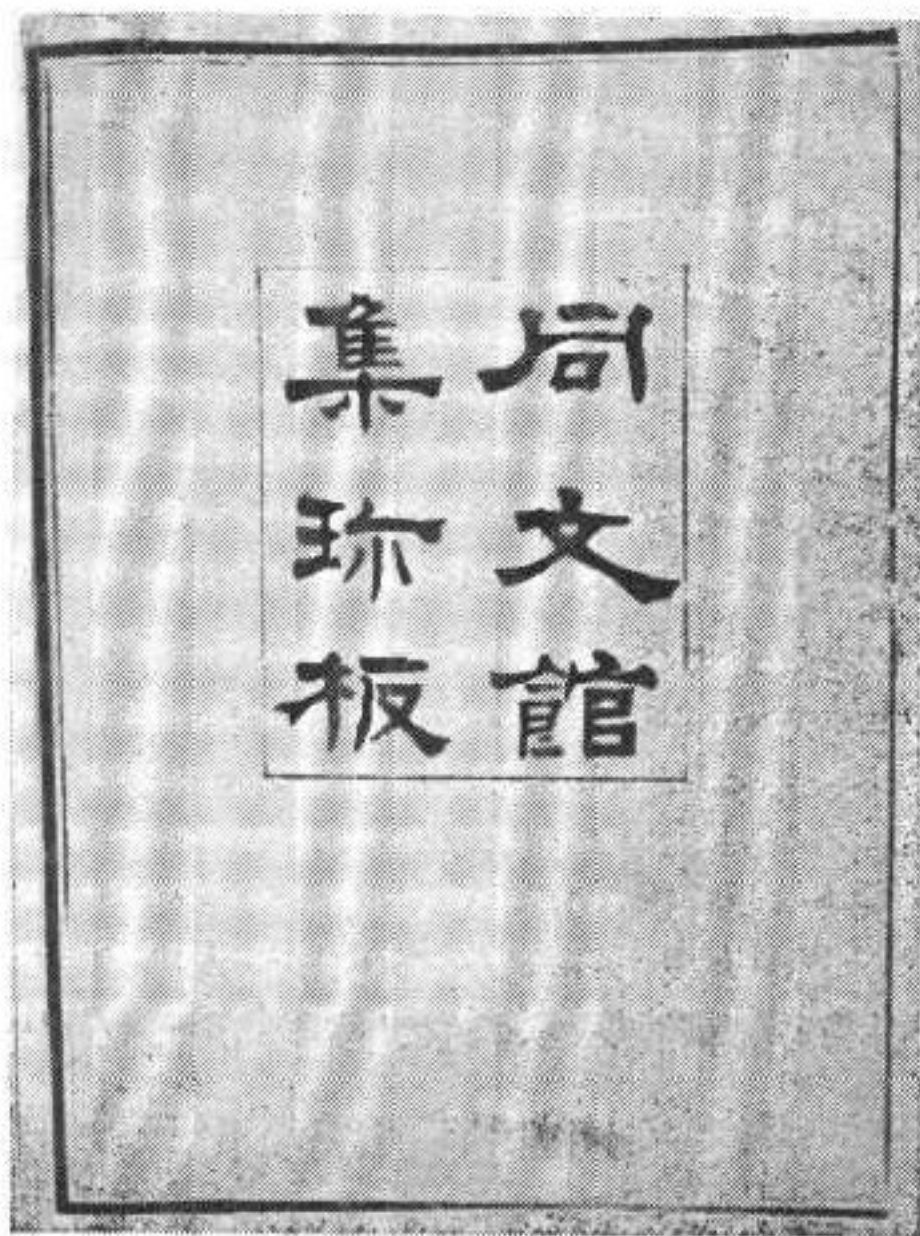 同文館
集珎板